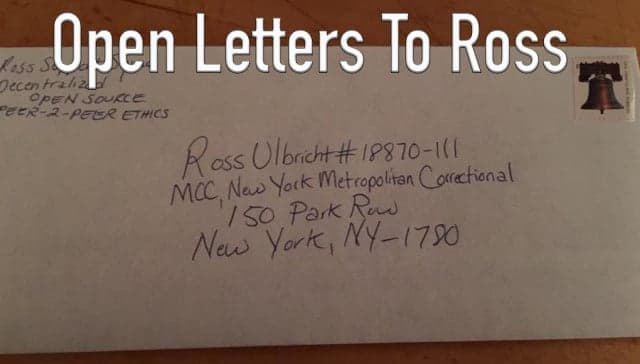 Open Letters To Ross
Ross
Decentralized
OPEN SOURCE
PEER-2-PEER ETHICS
Ross Ulbricht # 18870-111
MCC, New York Metropolitan Correctional
150 Park Row
New York, NY-1780